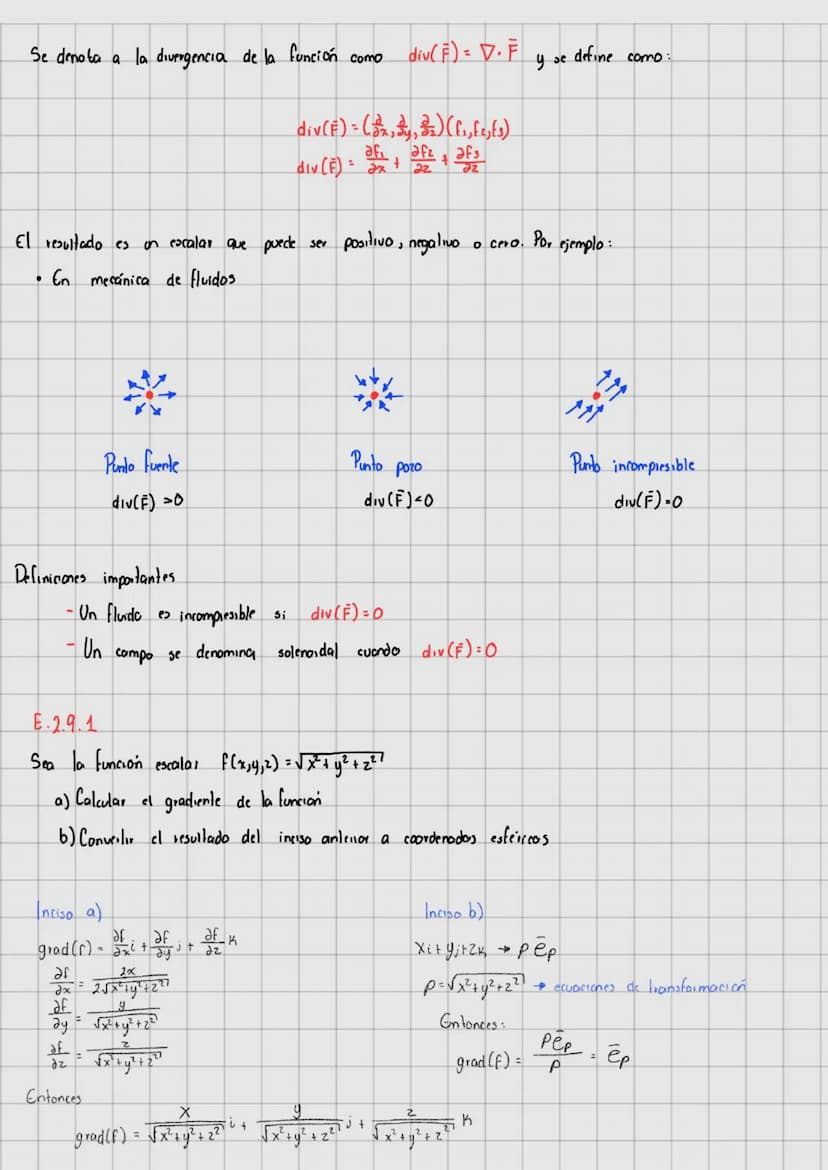 Se denota a la divergencia de la función como div(F̄) = ∇ · F̄ y se define como:
div(F̄) = (∂/∂x, ∂/∂y, ∂/∂z)(f₁, f₂, f₃)
div(F̄) = ∂f₁/∂x + ∂f₂/∂z + ∂f₃/∂z
El resultado es un escalar que puede ser positivo, negativo o cero. Por ejemplo:
• En mecánica de fluidos
Punto fuente Punto pozo Punto incompresible
div(F̄) >0 div(F̄)<0 div(F̄)=0
Definiciones importantes
- Un fluido es incompresible si div(F̄)=0
- Un campo se denomina solenoidal cuando div(F̄)=0
E.2.9.1
Sea la función escalar f(x,y,z) = √x² + y² + z²
a) Calcular el gradiente de la función
b) Convertir el resultado del inciso anterior a coordenadas esféricas
Inciso a)
grad(f) = ∂f/∂x i + ∂f/∂y j + ∂f/∂z k
∂f/∂x = 2x/2√x²+y²+z²
∂f/∂y = y/√x²+y²+z²
∂f/∂z = z/√x²+y²+z²
Entonces
grad(f) = x/√x²+y²+z² i + y/√x²+y²+z² j + z/√x²+y²+z² k
Inciso b)
xi + yj + zk → ρ ēρ
ρ = √x²+y²+z² → ecuaciones de transformación
Entonces:
grad(f) = ρēρ/ρ = ēρ